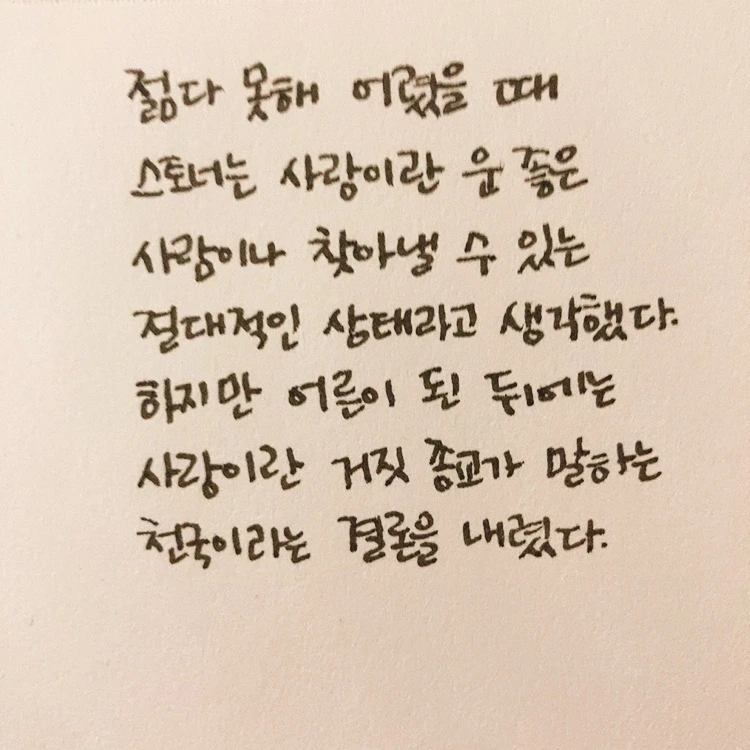 젊다 못해 어렸을 때
스토너는 사랑이란 운 좋은
사람이나 찾아낼 수 있는
절대적인 상태라고 생각했다.
하지만 어른이 된 뒤에는
사랑이란 거짓 종교가 말하는
천국이라는 결론을 내렸다.